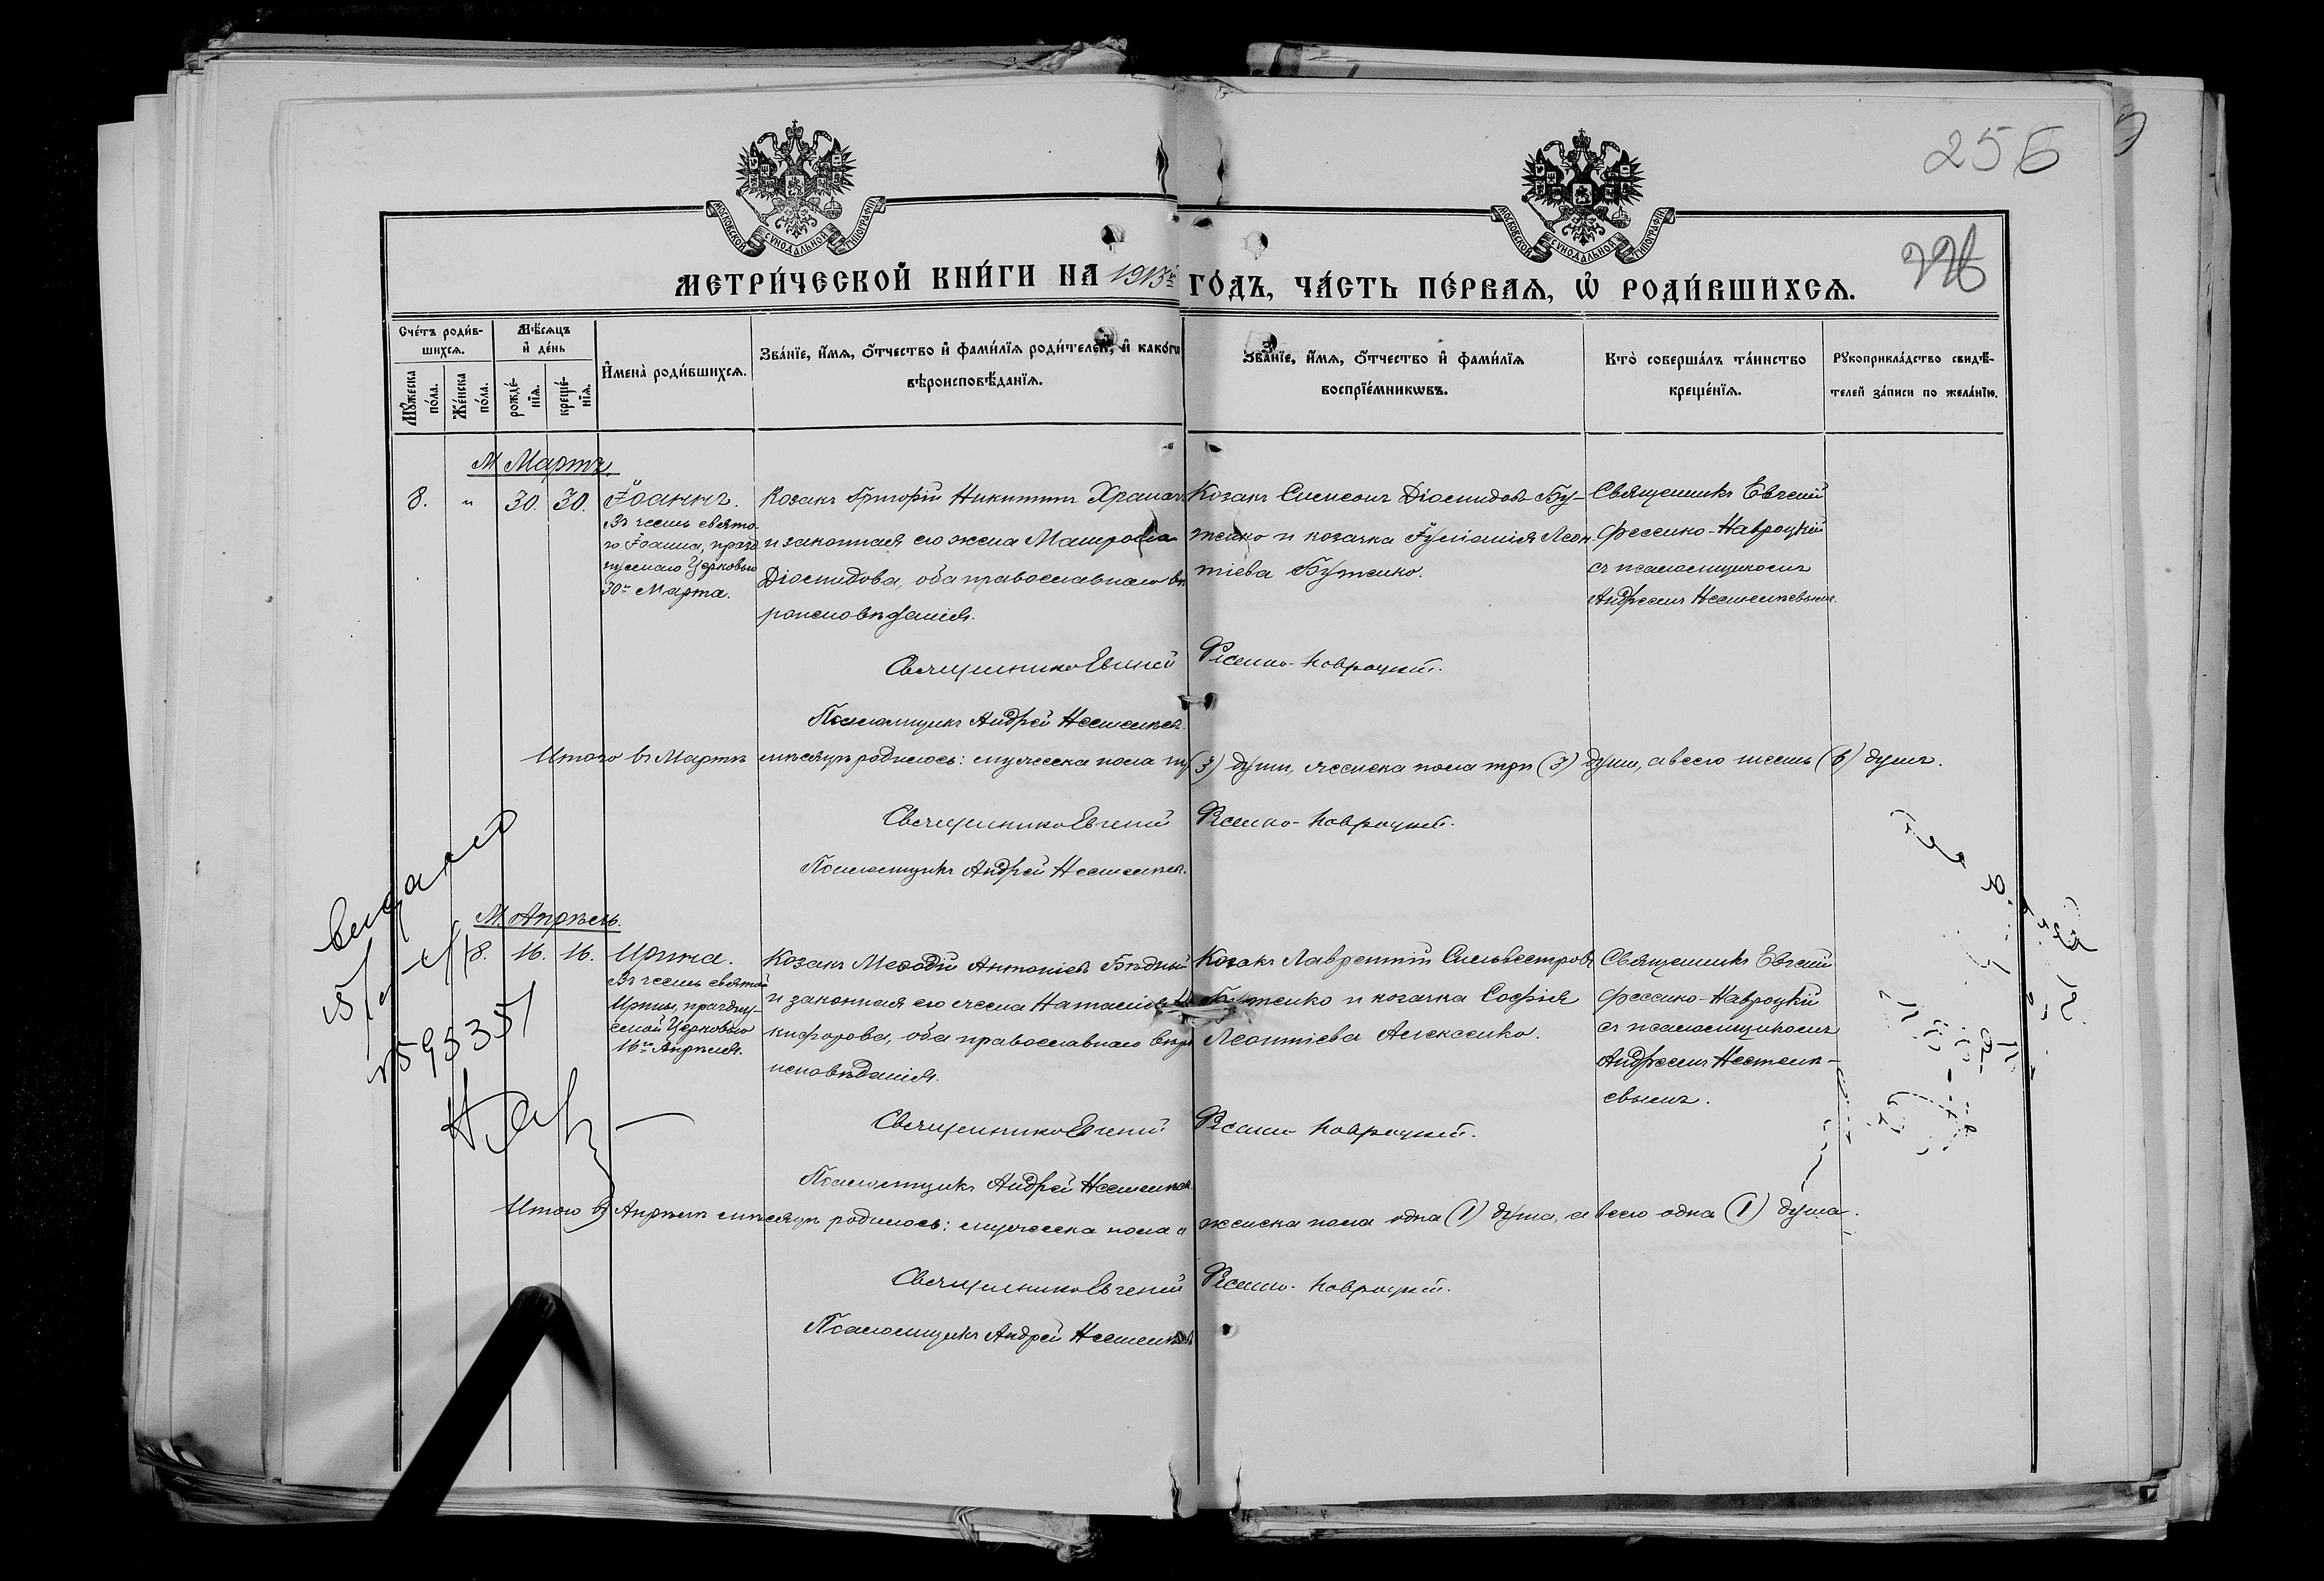 256
МОСКОВСКОЙ СѴНОДАЛЬНОЙ ТИПОГРАФІИ
МОСКОВСКОЙ СѴНОДАЛЬНОЙ ТИПОГРАФІИ
МЕТРИ́ЧЕСКОЙ КНИ́ГИ НА 1913й ГО́ДЪ, ЧА́СТЬ ПЕ́РВАЯ, Ѡ҆ РОДИ́ВШИХСЯ.
Сче́тъ роди́в-
шихся.
Мꙋ́жеска по́ла.
Же́нска по́ла.
Мѣ́сяцъ
и҆ де́нь
рожде́-
нїя.
креще́-
нїя.
И҆мена̀ роди́вшихся.
Зва́нїе, и҆́мя, ѻ҆́тчество и҆ фами́лїя роди́телей, и҆ како́гѡ
вѣроисповѣ́данїя.
Зва́нїе, и҆́мя, ѻ҆́тчество и҆ фами́лїя
воспрїе́мникѡвъ.
Кто̀ соверша́лъ та́инство
креще́нїя.
Рꙋкоприкла́дство свидѣ́-
телей за́писи по жела́нїю.
М Мартъ.
8. " 30. 30. Іоаннъ.
Въ честь свято-
го Іоанна, празд
нуемаго Церковью
30го Марта.
Козакъ Григорій Никитинъ Храпач
и законная его жена Матрона
Діомидова, оба православнаго вѣ
роисповѣданія.
Козакъ Симеонъ Діомидовъ Бу-
тенко и козачка Іуліанія Леон
тіева Бутенко.
Священникъ Евгеній
Фесенко-Навроцкій
съ псаломщикомъ
Андреемъ
Священникъ Евгеній Фесенко-Навроцкій.
Псаломщикъ Андрей
Итого въ Мартѣ мѣсяцѣ родилось: мужеска пола три (3) души, женска пола три (3) души, а всего шесть (6) душъ.
Священникъ Евгеній Фесенко-Навроцкій.
Псаломщикъ Андрей
М. Апрѣль.
16. 16. Ирина.
Въ честь святой
Ирины, праздну-
емой Церковью
16го Апрѣля.
Козакъ Меѳодій Антоніевъ Бѣдный
и законная его жена Наталія Ни
кифорова, оба православнаго вѣро
исповѣданія.
Козакъ Лаврентій Сильвестровъ
Бутенко и козачка Софія
Леонтіева Алексенко.
Священникъ Евгеній
Фесенко-Навроцкій
съ псаломщикомъ
Андреемъ
видано
Священникъ Евгеній Фесенко-Навроцкій.
Псаломщикъ Андрей
Итого въ Апрѣлѣ мѣсяцѣ родилось: мужеска пола женска пола одна (1) душа, а всего одна (1) душа.
Священникъ Евгеній Фесенко-Навроцкій.
Псаломщикъ Андрей